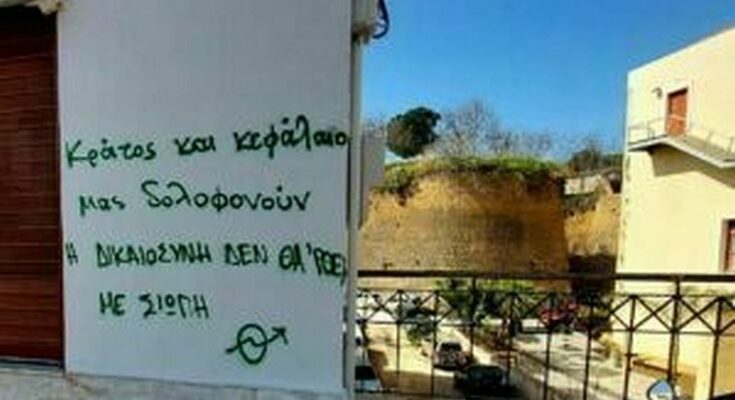 Κράτος και κεφάλαιο
μας δολοφονούν
Η ΔΙΚΑΙΟΣΥΝΗ ΔΕΝ ΘΑ 'ΡΘΕΙ
ΜΕ ΣΙΩΠΗ